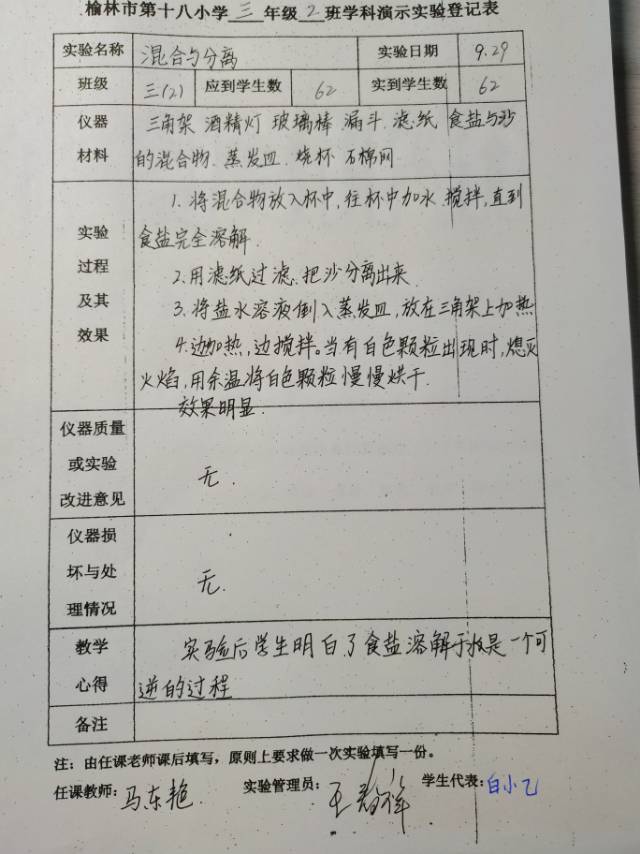 榆林市第十八小学 三 年级 2 班学科演示实验登记表
实验名称 混合与分离 实验日期 9.29
班级 三(2) 应到学生数 62 实到学生数 62
仪器 三角架 酒精灯 玻璃棒 漏斗. 滤纸 食盐与沙
材料 的混合物. 蒸发皿. 烧杯 石棉网
1. 将混合物放入杯中,往杯中加水 搅拌,直到
实验 食盐完全溶解.
过程 2.用滤纸过滤.把沙分离出来
及其 3.将盐水溶液倒入蒸发皿,放在三角架上加热
效果 4.边加热,边搅拌。当有白色颗粒出现时,熄灭
火焰,用余温将白色颗粒慢慢烘干.
效果明显.
仪器质量
或实验 无.
改进意见
仪器损
坏与处 无.
理情况
教学 实验后学生明白了食盐溶解于水是一个可
心得 逆的过程
备注
注:由任课老师课后填写,原则上要求做一次实验填写一份。
任课教师: 马东艳. 实验管理员: 王 学生代表: 白小乙